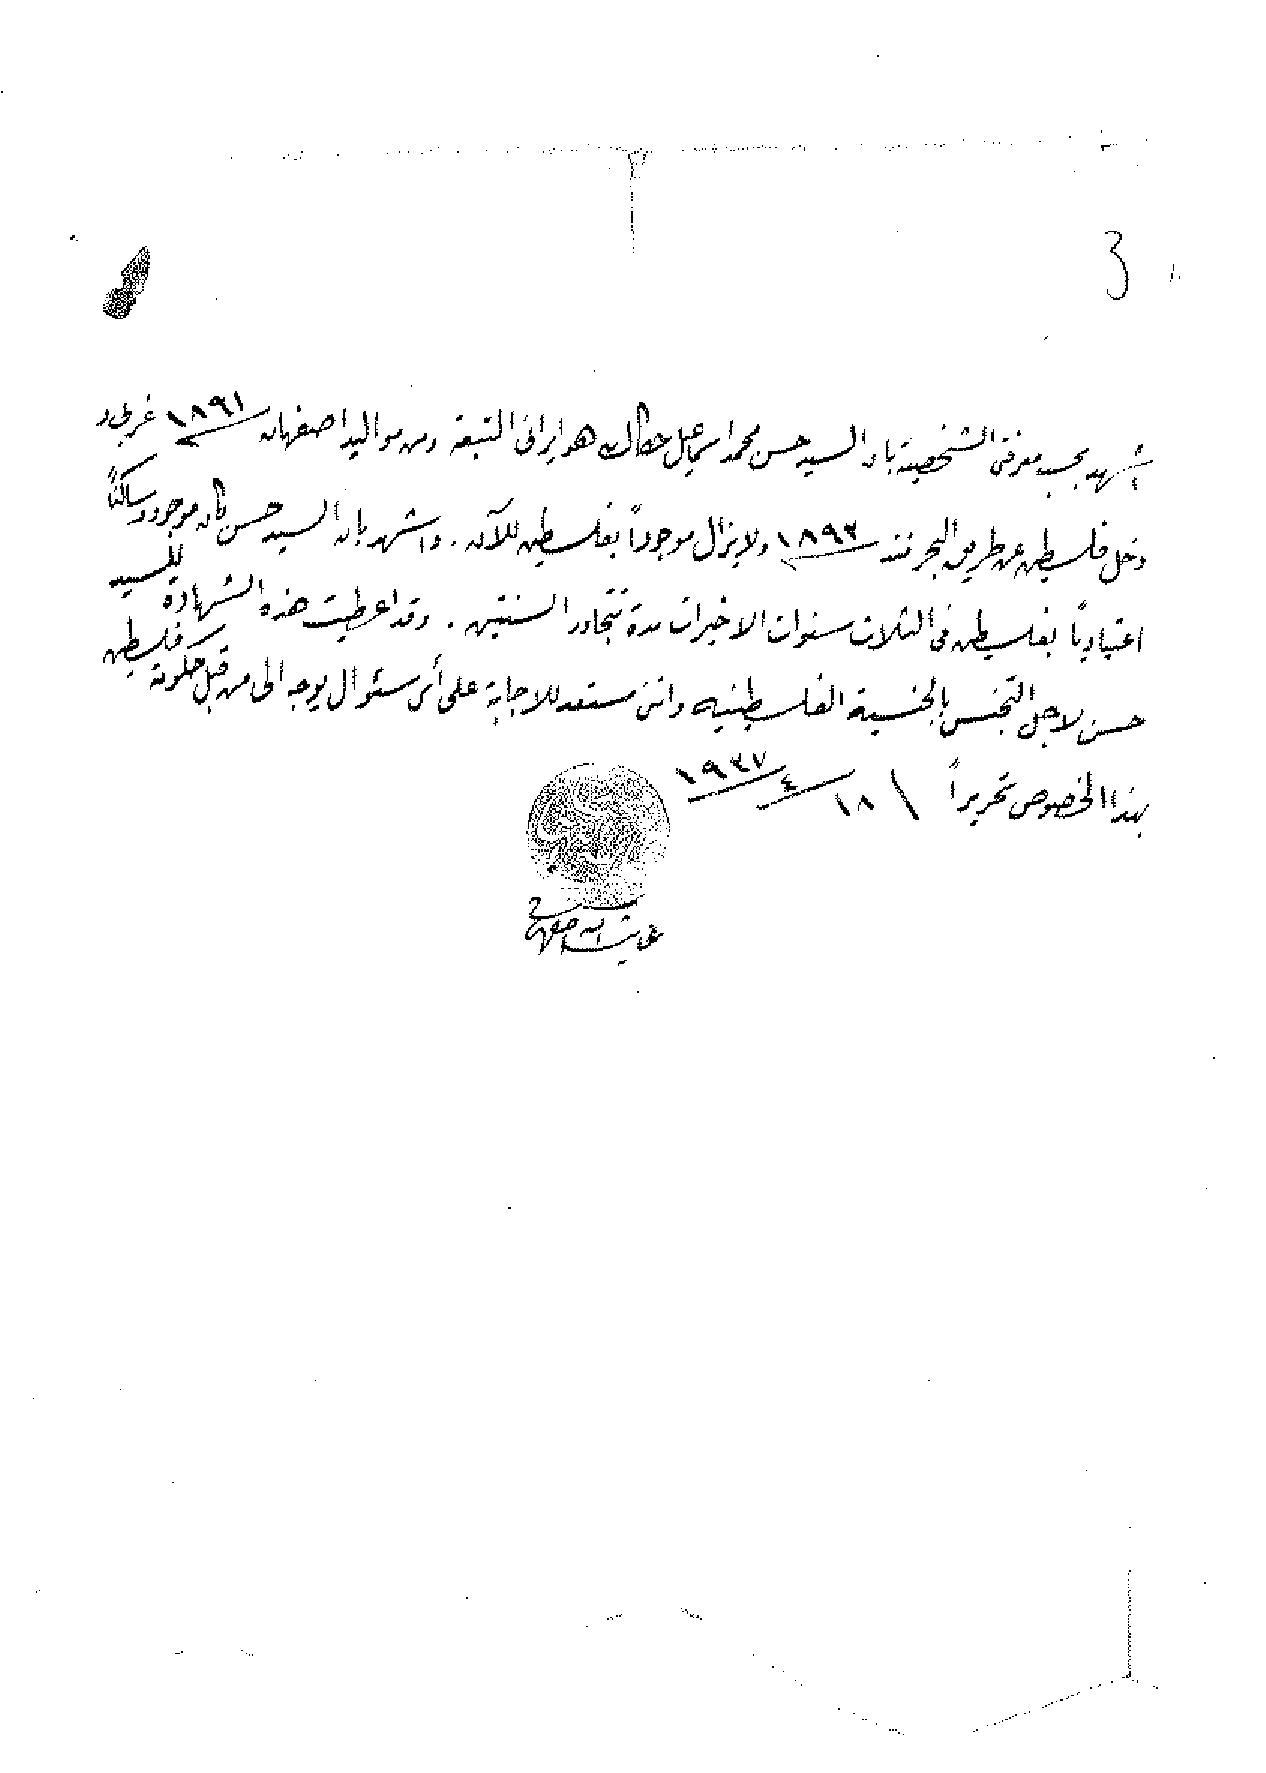 3
اشهد بحسب معرفتي الشخصية بان السيد حسن محمد اسماعيل هو ايراني التبعة ومن مواليد اصفهان ١٨٩١ غربي و
دخل فلسطين عن طريق البحر سنة ١٨٩٣ ولا يزال موجوداً بفلسطين للآن . واشهد بان السيد حسن كان موجود وساكناً
اعتيادياً بفلسطين في الثلاث سنوات الاخيرات مدة تتجاوز السنتين . وقد اعطيت هذه الشهادة للسيد
حسن لاجل التجنس بالجنسية الفلسطينيه وانني مستعد للاجابة على أي سئوال يوجه الي من قبل حكومة فلسطين
بهذا الخصوص تحريراً \ ١٨/٤/١٩٣٧
عنايت الله